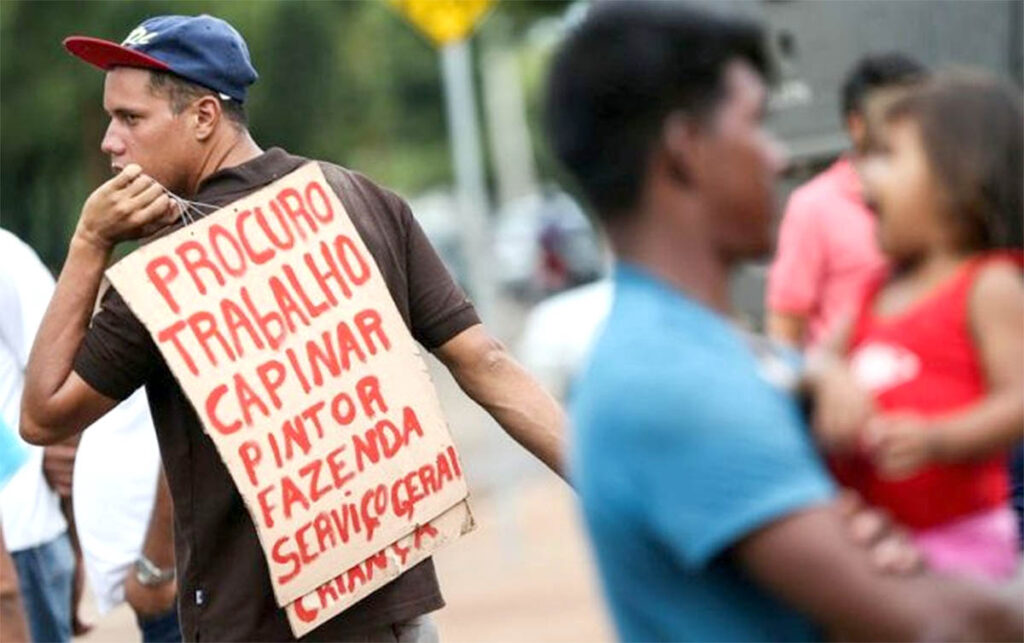 PROCURO
TRAbALHO
CAPINAR
PINTOR
FAZENDA
SERVIÇO GERAI
CRIANÇA